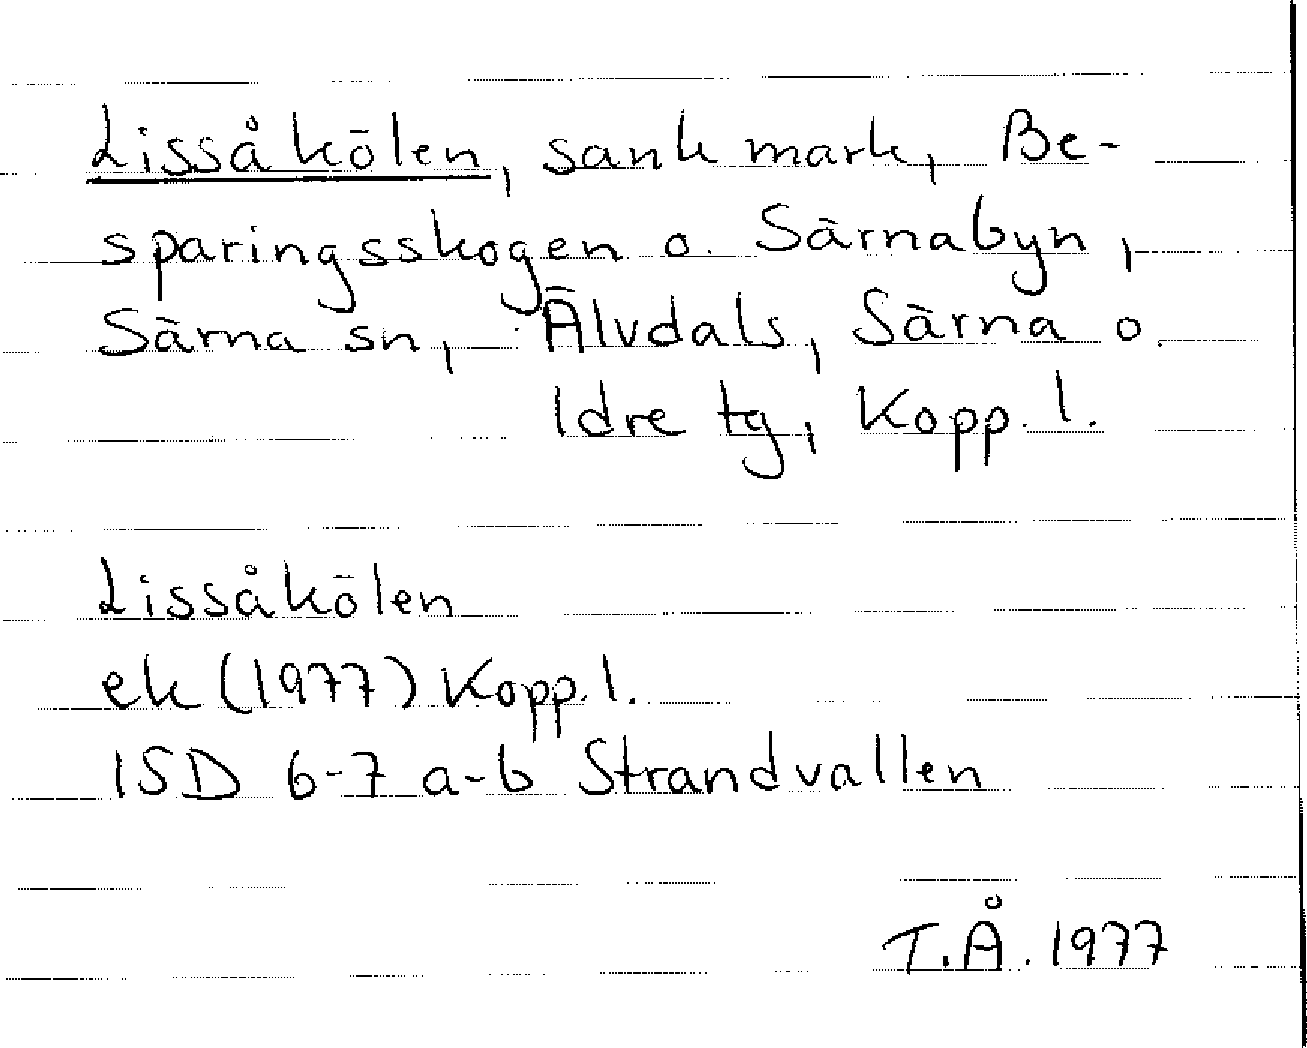 Lissåkölen, sank mark, Be-
sparingsskogen o. Särnabyn,
Särna sn, Älvdals, Särna o.
Idre tg, Kopp. l.
Lissåkölen
ek (1977) Kopp. l.
15D 6-7 a-b Strandvallen
T.Å. 1977